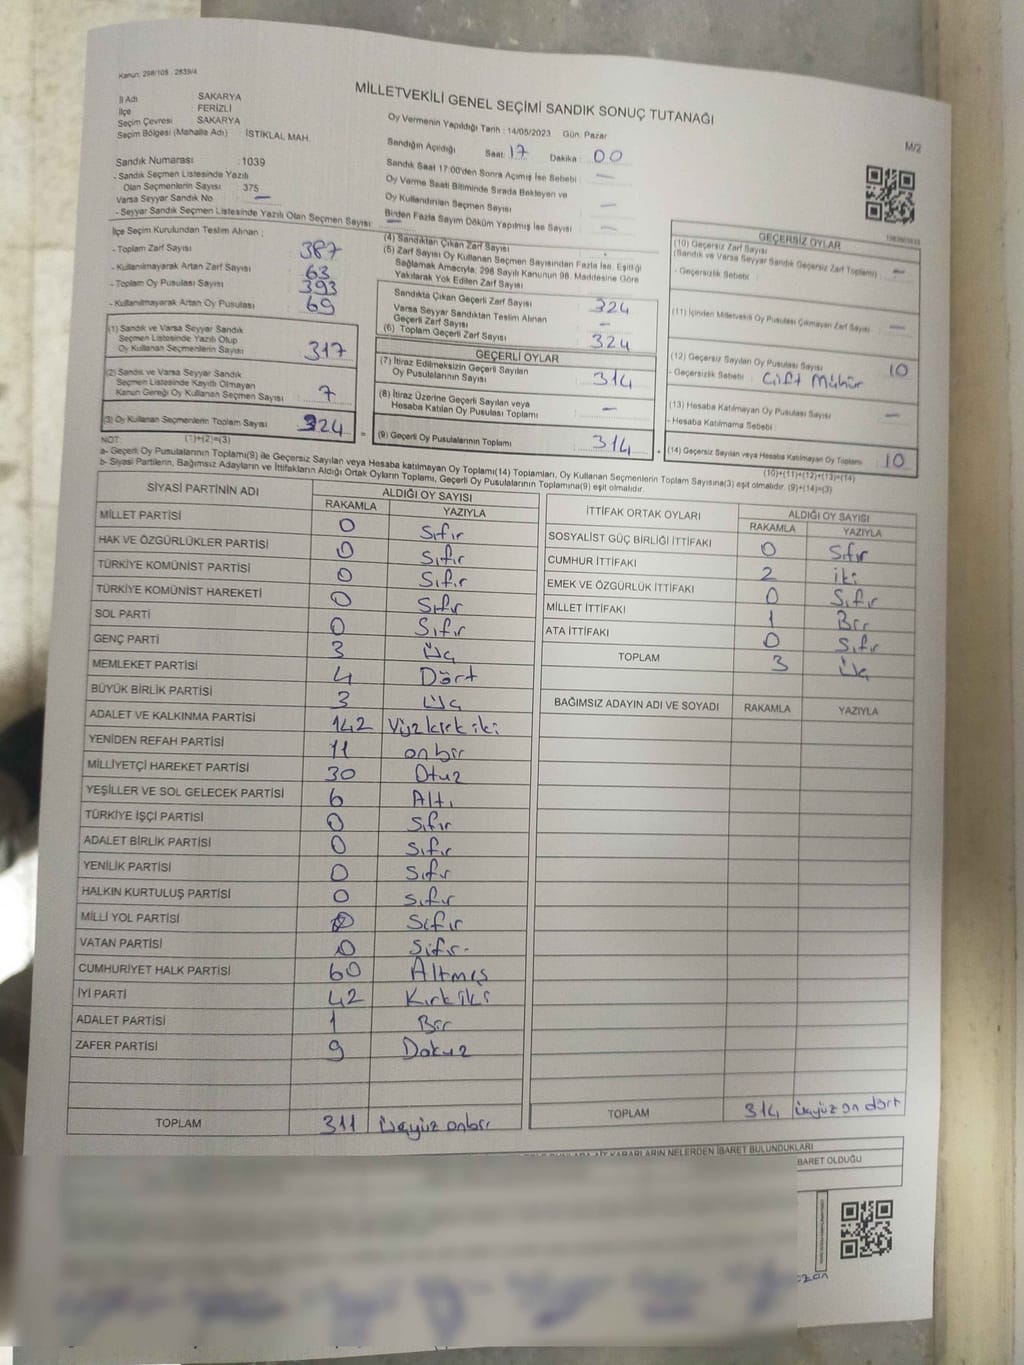 Kanun: 298/105 . 2839/4
MİLLETVEKİLİ GENEL SEÇİMİ SANDIK SONUÇ TUTANAĞI
M/2
İl Adı SAKARYA
İlçe : FERİZLİ
Seçim Çevresi SAKARYA
Seçim Bölgesi (Mahalle Adı) : İSTİKLAL MAH.
Sandık Numarası : 1039
- Sandık Seçmen Listesinde Yazılı
Olan Seçmenlerin Sayısı : 375
Varsa Seyyar Sandık No —
- Seyyar Sandık Seçmen Listesinde Yazılı Olan Seçmen Sayısı: —
Oy Vermenin Yapıldığı Tarih : 14/05/2023 Gün: Pazar
Sandığın Açıldığı Saat: 17 Dakika : 00
Sandık Saat 17:00'den Sonra Açımış İse Sebebi : —
Oy Verme Saati Bitiminde Sırada Bekleyen ve
Oy Kullandırılan Seçmen Sayısı : —
Birden Fazla Sayım Döküm Yapılmış İse Sayısı : —
İlçe Seçim Kurulundan Teslim Alınan ;
- Toplam Zarf Sayısı : 387
- Kullanılmayarak Artan Zarf Sayısı : 63
- Toplam Oy Pusulası Sayısı : 393
- Kullanılmayarak Artan Oy Pusulası : 69
(1) Sandık ve Varsa Seyyar Sandık
Seçmen Listesinde Yazılı Olup
Oy Kullanan Seçmenlerin Sayısı : 317
(2) Sandık ve Varsa Seyyar Sandık
Seçmen Listesinde Kayıtlı Olmayan
Kanun Gereği Oy Kullanan Seçmen Sayısı : 7
(3) Oy Kullanan Seçmenlerin Toplam Sayısı : 324
(4) Sandıktan Çıkan Zarf Sayısı
(5) Zarf Sayısı Oy Kullanan Seçmen Sayısından Fazla İse, Eşitliği
Sağlamak Amacıyla; 298 Sayılı Kanunun 98. Maddesine Göre
Yakılarak Yok Edilen Zarf Sayısı
Sandıkta Çıkan Geçerli Zarf Sayısı : 324
Varsa Seyyar Sandıktan Teslim Alınan
Geçerli Zarf Sayısı : —
(6) Toplam Geçerli Zarf Sayısı : 324
GEÇERLİ OYLAR
(7) İtiraz Edilmeksizin Geçerli Sayılan
Oy Pusulalarının Sayısı : 314
(8) İtiraz Üzerine Geçerli Sayılan veya
Hesaba Katılan Oy Pusulası Toplamı : —
(9) Geçerli Oy Pusulalarının Toplamı : 314
GEÇERSİZ OYLAR
(10) Geçersiz Zarf Sayısı
(Sandık ve Varsa Seyyar Sandık Geçersiz Zarf Toplamı) : —
- Geçersizlik Sebebi :
(11) İçinden Milletvekili Oy Pusulası Çıkmayan Zarf Sayısı : —
(12) Geçersiz Sayılan Oy Pusulası Sayısı : 10
- Geçersizlik Sebebi : Çift Mühür
(13) Hesaba Katılmayan Oy Pusulası Sayısı : —
- Hesaba Katılmama Sebebi :
(14) Geçersiz Sayılan veya Hesaba Katılmayan Oy Toplamı : 10
NOT: (1)+(2)=(3)
(10)+(11)+(12)+(13)=(14)
a- Geçerli Oy Pusulaların Toplamı(9) ile Geçersiz Sayılan veya Hesaba katılmayan Oy Toplamı(14) Toplamları, Oy Kullanan Seçmenlerin Toplam Sayısına(3) eşit olmalıdır. (9)+(14)=(3)
b- Siyasi Partilerin, Bağımsız Adayların ve İttifakların Aldığı Ortak Oyların Toplamı, Geçerli Oy Pusulalarının Toplamına(9) eşit olmalıdır.
SİYASİ PARTİNİN ADI ALDIĞI OY SAYISI
RAKAMLA YAZIYLA
MİLLET PARTİSİ 0 Sıfır
HAK VE ÖZGÜRLÜKLER PARTİSİ 0 Sıfır
TÜRKİYE KOMÜNİST PARTİSİ 0 Sıfır
TÜRKİYE KOMÜNİST HAREKETİ 0 Sıfır
SOL PARTİ 0 Sıfır
GENÇ PARTİ 3 Üç
MEMLEKET PARTİSİ 4 Dört
BÜYÜK BİRLİK PARTİSİ 3 Üç
ADALET VE KALKINMA PARTİSİ 142 Yüzkırkiki
YENİDEN REFAH PARTİSİ 11 onbir
MİLLİYETÇİ HAREKET PARTİSİ 30 Otuz
YEŞİLLER VE SOL GELECEK PARTİSİ 6 Altı
TÜRKİYE İŞÇİ PARTİSİ 0 Sıfır
ADALET BİRLİK PARTİSİ 0 Sıfır
YENİLİK PARTİSİ 0 Sıfır
HALKIN KURTULUŞ PARTİSİ 0 sıfır
MİLLİ YOL PARTİSİ 0 Sıfır
VATAN PARTİSİ 0 Sıfır
CUMHURİYET HALK PARTİSİ 60 Altmış
İYİ PARTİ 42 Kırkiki
ADALET PARTİSİ 1 Bir
ZAFER PARTİSİ 9 Dokuz
TOPLAM 311 üçyüz onbir
İTTİFAK ORTAK OYLARI ALDIĞI OY SAYISI
RAKAMLA YAZIYLA
SOSYALİST GÜÇ BİRLİĞİ İTTİFAKI 0 Sıfır
CUMHUR İTTİFAKI 2 iki
EMEK VE ÖZGÜRLÜK İTTİFAKI 0 Sıfır
MİLLET İTTİFAKI 1 Bir
ATA İTTİFAKI 0 Sıfır
TOPLAM 3 Üç
BAĞIMSIZ ADAYIN ADI VE SOYADI RAKAMLA YAZIYLA
TOPLAM 314 üçyüz on dört
KARARLARIN NELERDEN İBARET BULUNDUKLARI
BARET OLDUĞU